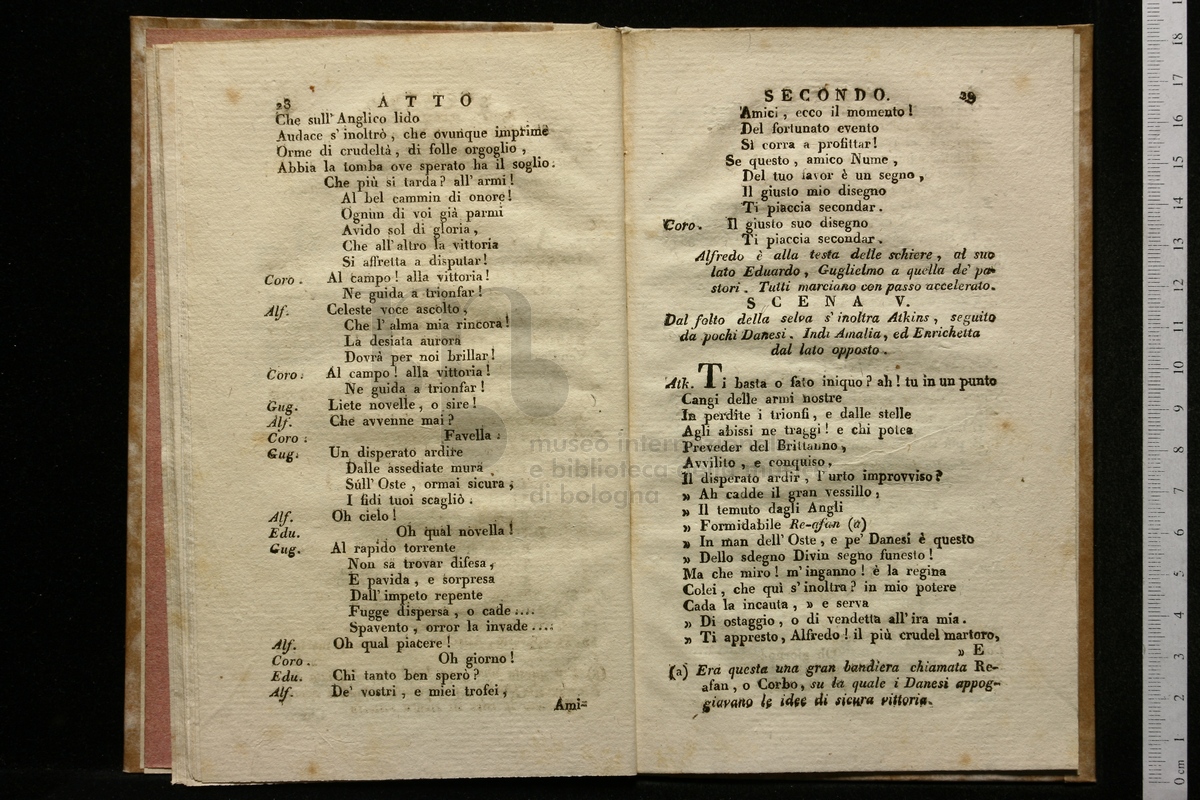 28 ATTO
Che sull' Anglico lido
Audace s' inoltrò, che ovunque imprime
Orme di crudeltà, di folle orgoglio,
Abbia la tomba ove sperato ha il soglio.
Che più si tarda? all' armi!
Al bel cammin di onore!
Ognun di voi già parmi
Avido sol di gloria,
Che all' altro la vittoria
Si affretta a disputar!
Coro. Al campo! alla vittoria!
Ne guida a trionfar!
Alf. Celeste voce ascolto,
Che l' alma mia rincora!
La desiata aurora
Dovrà per noi brillar!
Coro. Al campo! alla vittoria!
Ne guida a trionfar!
Gug. Liete novelle, o sire!
Alf. Che avvenne mai?
Coro. Favella.
Gug. Un disperato ardire
Dalle assediate mura
Sull' Oste, ormai sicura,
I fidi tuoi scagliò.
Alf. Oh cielo!
Edu. Oh qual novella!
Gug. Al rapido torrente
Non sa trovar difesa,
E pavida, e sorpresa
Dall' impeto repente
Fugge dispersa, o cade....
Spavento, orror la invade....
Alf. Oh qual piacere!
Coro. Oh giorno!
Edu. Chi tanto ben sperò?
Alf. De' vostri, e miei trofei,
Ami-
SECONDO. 29
Amici, ecco il momento!
Del fortunato evento
Si corra a profittar!
Se questo, amico Nume,
Del tuo favor è un segno,
Il giusto mio disegno
Ti piaccia secondar.
Coro. Il giusto suo disegno
Ti piaccia secondar.
Alfredo è alla testa delle schiere, al suo
lato Eduardo, Guglielmo a quella de' pa-
stori. Tutti marciano con passo accelerato.
SCENA V.
Dal folto della selva s' inoltra Atkins, seguito
da pochi Danesi. Indi Amalia, ed Enrichetta
dal lato opposto.
Atk. Ti basta o fato iniquo? ah! tu in un punto
Cangi delle armi nostre
In perdite i trionfi, e dalle stelle
Agli abissi ne traggi! e chi potea
Preveder del Brittanno,
Avvilito, e conquiso,
Il disperato ardir, l' urto improvviso?
» Ah cadde il gran vessillo,
» Il temuto dagli Angli
» Formidabile Re-afan (a)
» In man dell' Oste, e pe' Danesi è questo
» Dello sdegno Divin segno funesto!
Ma che miro! m' inganno! è la regina
Colei, che quì s' inoltra? in mio potere
Cada la incauta, » e serva
» Di ostaggio, o di vendetta all' ira mia.
» Ti appresto, Alfredo! il più crudel martoro,
» E
(a) Era questa una gran bandiera chiamata Re-
afan, o Corbo, su la quale i Danesi appog-
giavano le idee di sicura vittoria.
museo internazionale
e biblioteca della musica
di bologna